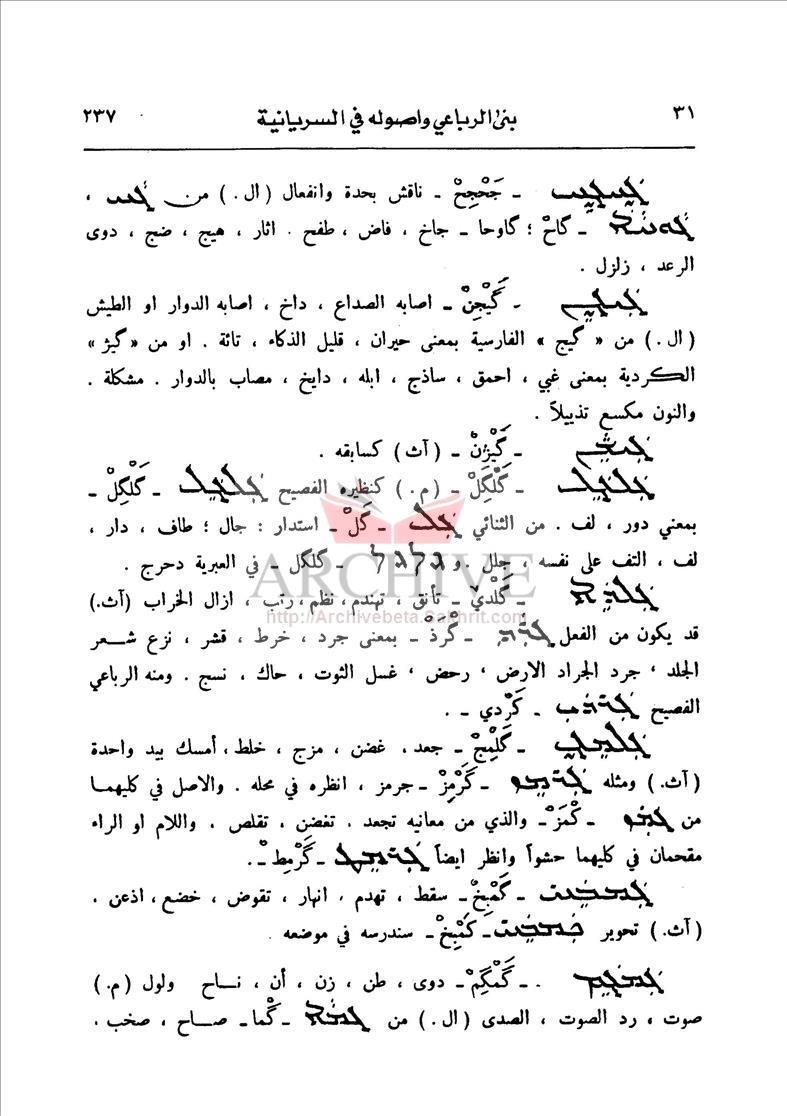 ٣١ بنى الرباعي واصوله في السريانية ٢٣٧
ـ جَحْجِحْ ـ ناقش بحدة وانفعال ( ال . ) من ،
ـ گاخْ ؛ گاوحا ـ جاخ ، فاض ، طفح . اثار ، هيج ، ضج ، دوى
الرعد ، زلزل .
ـ گَيْجِنْ ـ اصابه الصداع ، داخ ، اصابه الدوار او الطيش
( ال . ) من « گيج » الفارسية بمعنى حيران ، قليل الذكاء ، تائة . او من « گيژ »
الكردية بمعنى غبي ، احمق ، ساذج ، ابله ، دايخ ، مصاب بالدوار . مشكلة .
والنون مكسع تذييلاً .
ـ گَيْژِنْ ـ ( آث ) كسابقه .
ܓܠܓܠ ـ گَلْگِلْ ـ ( م . ) كنظيره الفصيح ܓܠܓܠ ـ گَلْگِلْ ـ
بمعني دور ، لف . من الثنائي ܓܠ ـ گَلْ ـ استدار : جال ؛ طاف ، دار ،
لف ، التف على نفسه ، جلل . و גלגל ـ گلگل ـ في العبرية دحرج .
ARCHIVE
ـ گَلْدي ـ تأنق ، تهندم ، نظم ، رتب ، ازال الخراب (آث.)
http://Archivebeta.Sakhrit.com
قد يكون من الفعل ܓܪܕ ـ گْرَدْ ـ بمعنى جرد ، خرط ، قشر ، نزع شعر
الجلد ، جرد الجراد الارض ، رحض ، غسل الثوت ، حاك ، نسج . ومنه الرباعي
الفصيح ܓܪܕܝ ـ گَرْدي ـ .
ـ گَلْمِجْ ـ جعد ، غضن ، مزج ، خلط ، أمسك بيد واحدة
(آث.) ومثله ܓܪܡܙ ـ گَرْمِزْ ـ جرمز ، انظره في محله . والاصل في كليهما
من ܓܡܙ ـ گْمَزْ ـ والذي من معانيه تجعد . تغضن ، تقلص . واللام او الراء
مقحمان في كليهما حشواً وانظر ايضاً ܓܪܡܛ ـ گَرْمِطْ ـ .
ـ گَمْبِخْ ـ سقط ، تهدم . انهار ، تقوض ، خضع ، اذعن .
(آث.) تحوير ـ كَمْبِخْ ـ سندرسه في موضعه .
ܓܡܓܡ . ـ گَمْگِمْ ـ دوى ، طن ، زن ، أن ، ناح ولول (م.)
صوت ، رد الصوت ، الصدى ( ال . ) من ܓܡܐ ـ گْما ـ صاح ، صخب .